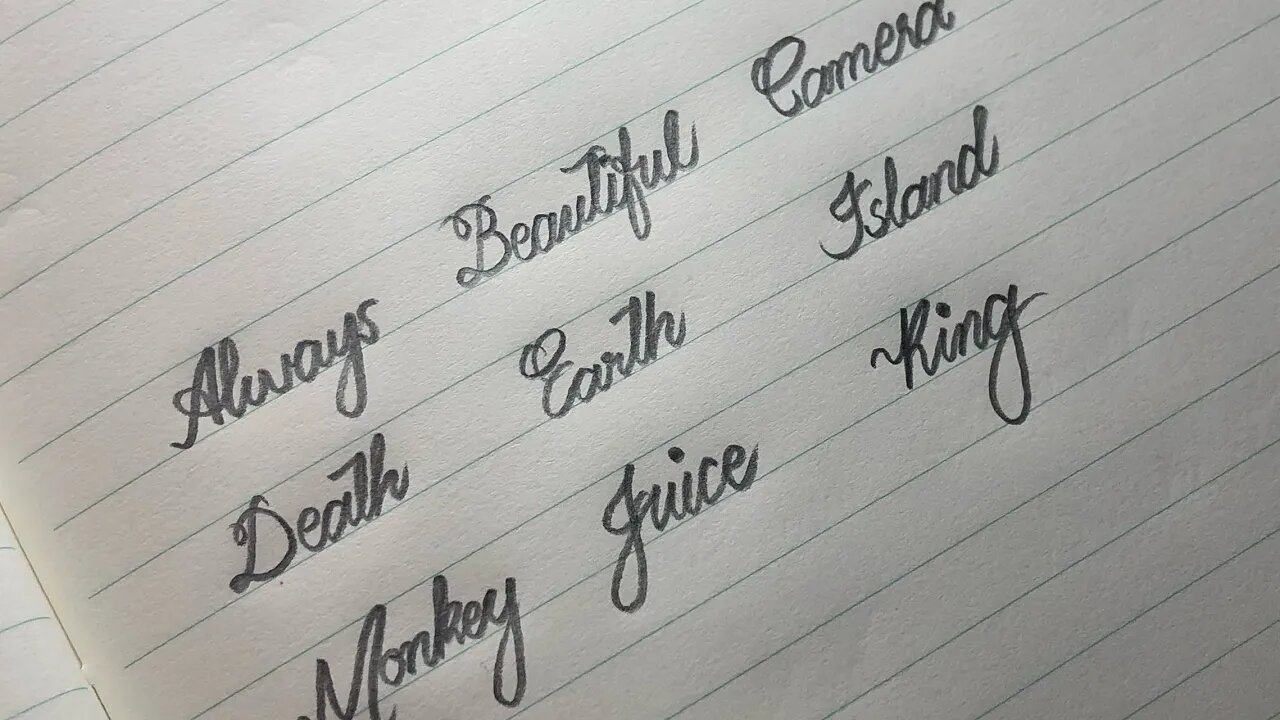 Always Beautiful Camera
Death Earth Island
Monkey Juice King